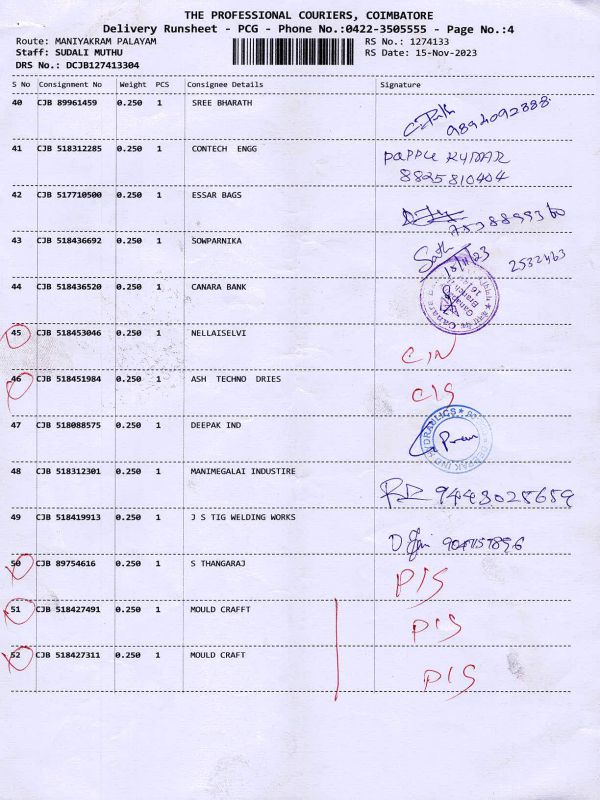 THE PROFESSIONAL COURIERS, COIMBATORE
Delivery Runsheet - PCG - Phone No.:0422-3505555 - Page No.:4
Route: MANIYAKRAM PALAYAM RS No.: 1274133
Staff: SUDALI MUTHU RS Date: 15-Nov-2023
DRS No.: DCJB127413304
S No Consignment No Weight PCS Consignee Details Signature
40 CJB 89961459 0.250 1 SREE BHARATH
9894092888
41 CJB 518312285 0.250 1 CONTECH ENGG PAPPLE KUMAR
8825810404
42 CJB 517710500 0.250 1 ESSAR BAGS
43 CJB 518436692 0.250 1 SOWPARNIKA
2532463
44 CJB 518436520 0.250 1 CANARA BANK
45 CJB 518453046 0.250 1 NELLAISELVI
C/N
46 CJB 518451984 0.250 1 ASH TECHNO DRIES
C/S
47 CJB 518088575 0.250 1 DEEPAK IND
48 CJB 518312301 0.250 1 MANIMEGALAI INDUSTIRE
9443028659
49 CJB 518419913 0.250 1 J S TIG WELDING WORKS
50 CJB 89754616 0.250 1 S THANGARAJ
P/S
51 CJB 518427491 0.250 1 MOULD CRAFFT
P/S
52 CJB 518427311 0.250 1 MOULD CRAFT
P/S